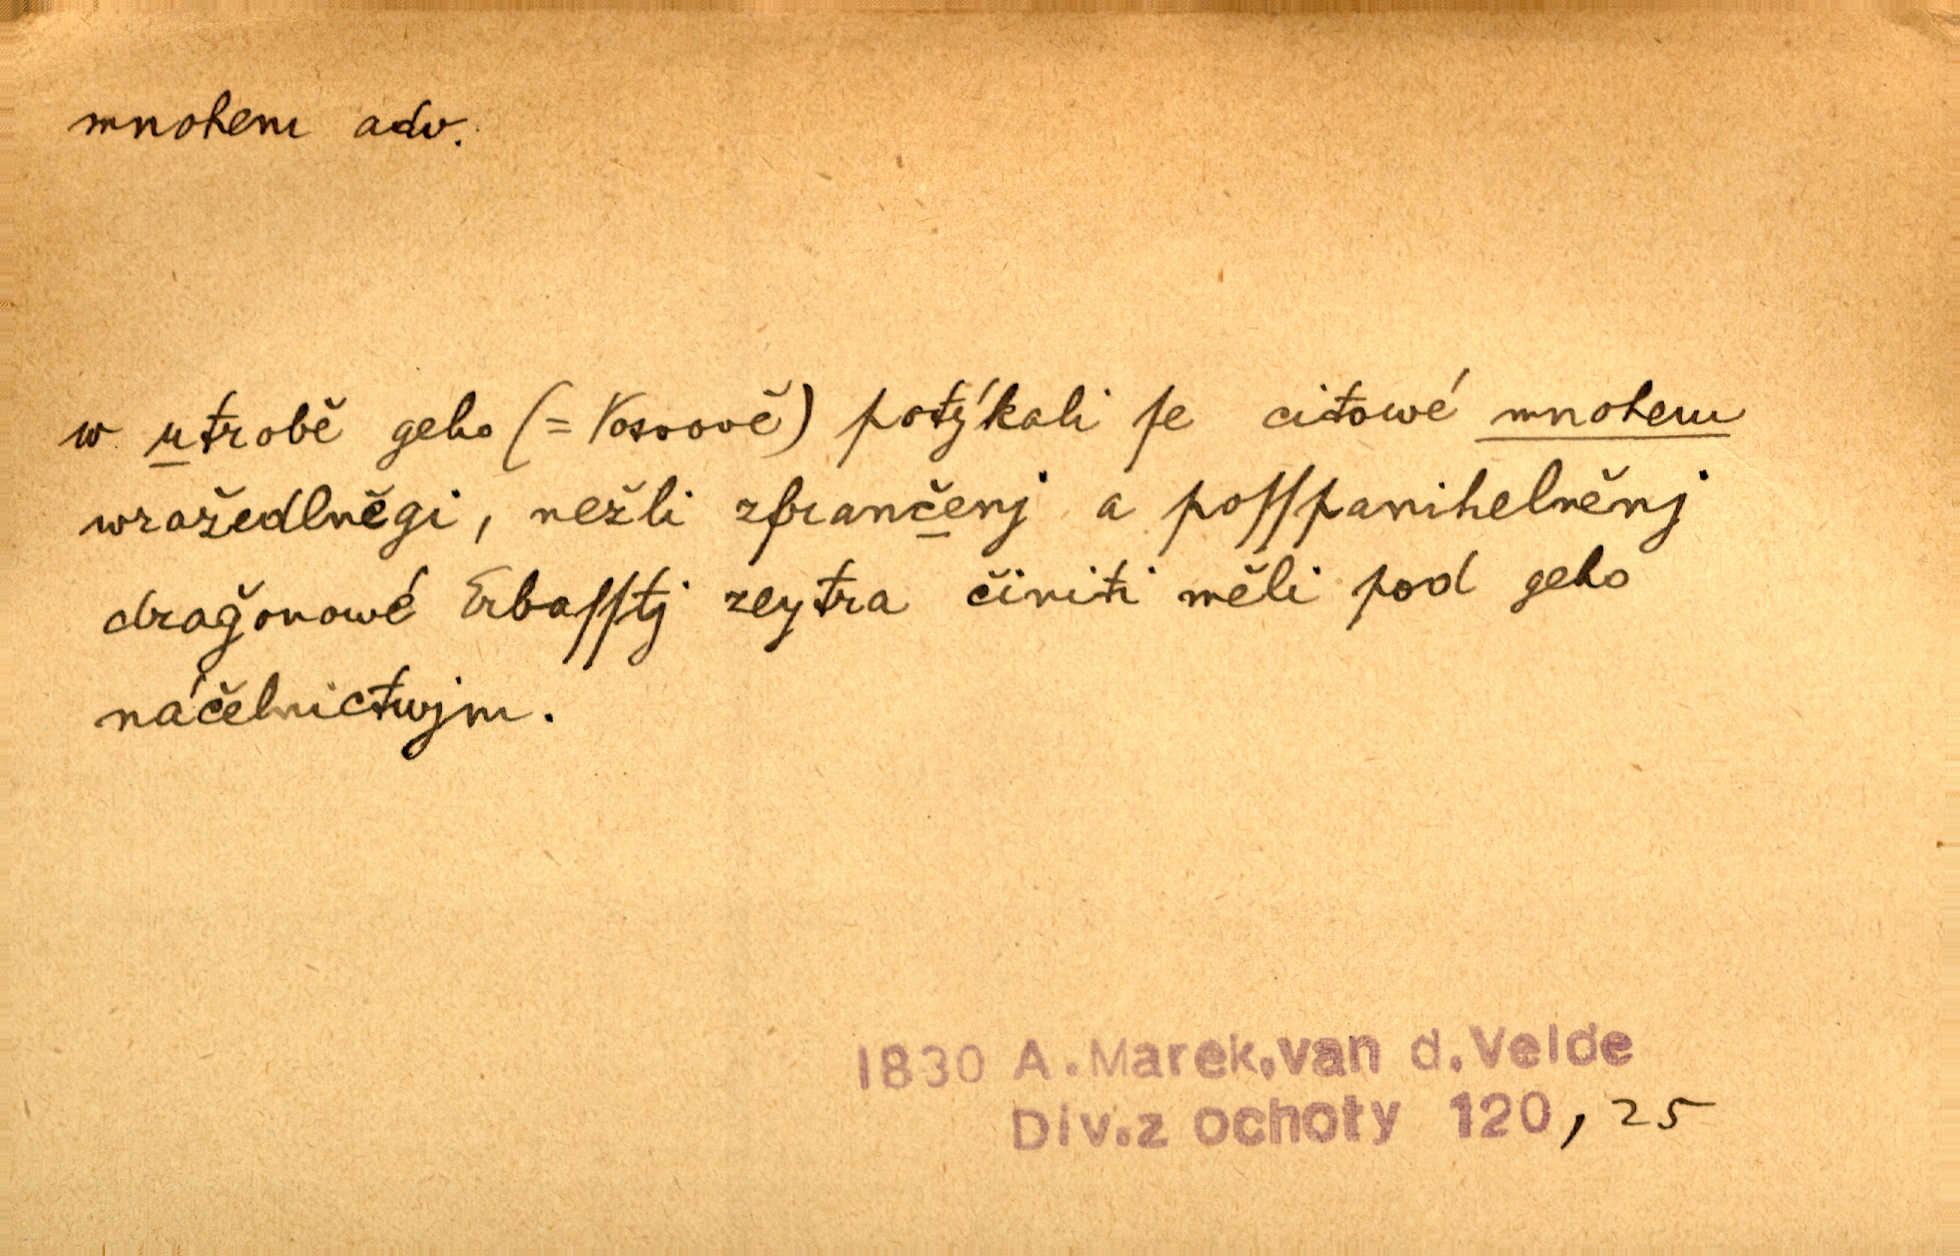 mnohem adv.
w utrobě geho (= Vosoově) potýkali ſe citowé mnohem
wražedlněgi, nežli zfrančenj a poſſpanihelněnj
drağonowé Erbaſſtj zeytra činiti měli pod geho
náčelnictwjm.
1830 A.Marek,van d.Velde
Div.z ochoty 120, 25